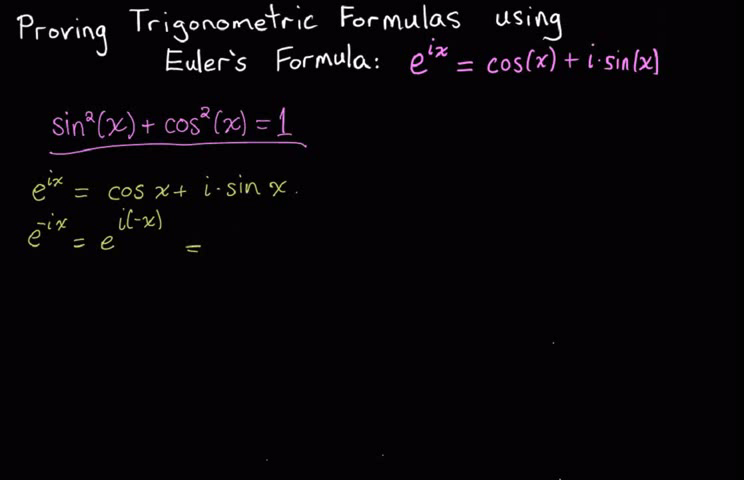 Proving Trigonometric Formulas using
Euler's Formula: e^{ix} = cos(x) + i·sin(x)
sin²(x) + cos²(x) = 1
e^{ix} = cos x + i·sin x.
e^{-ix} = e^{i(-x)} =